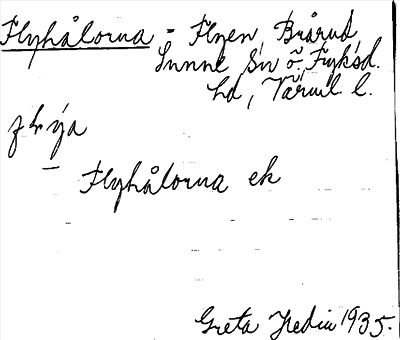 Flyhålorna - Flyen, Brårud
Sunne Sn Ö. Fryksd.
hd, Värml l.
Flyhålorna ek
Greta Hedin 1935.